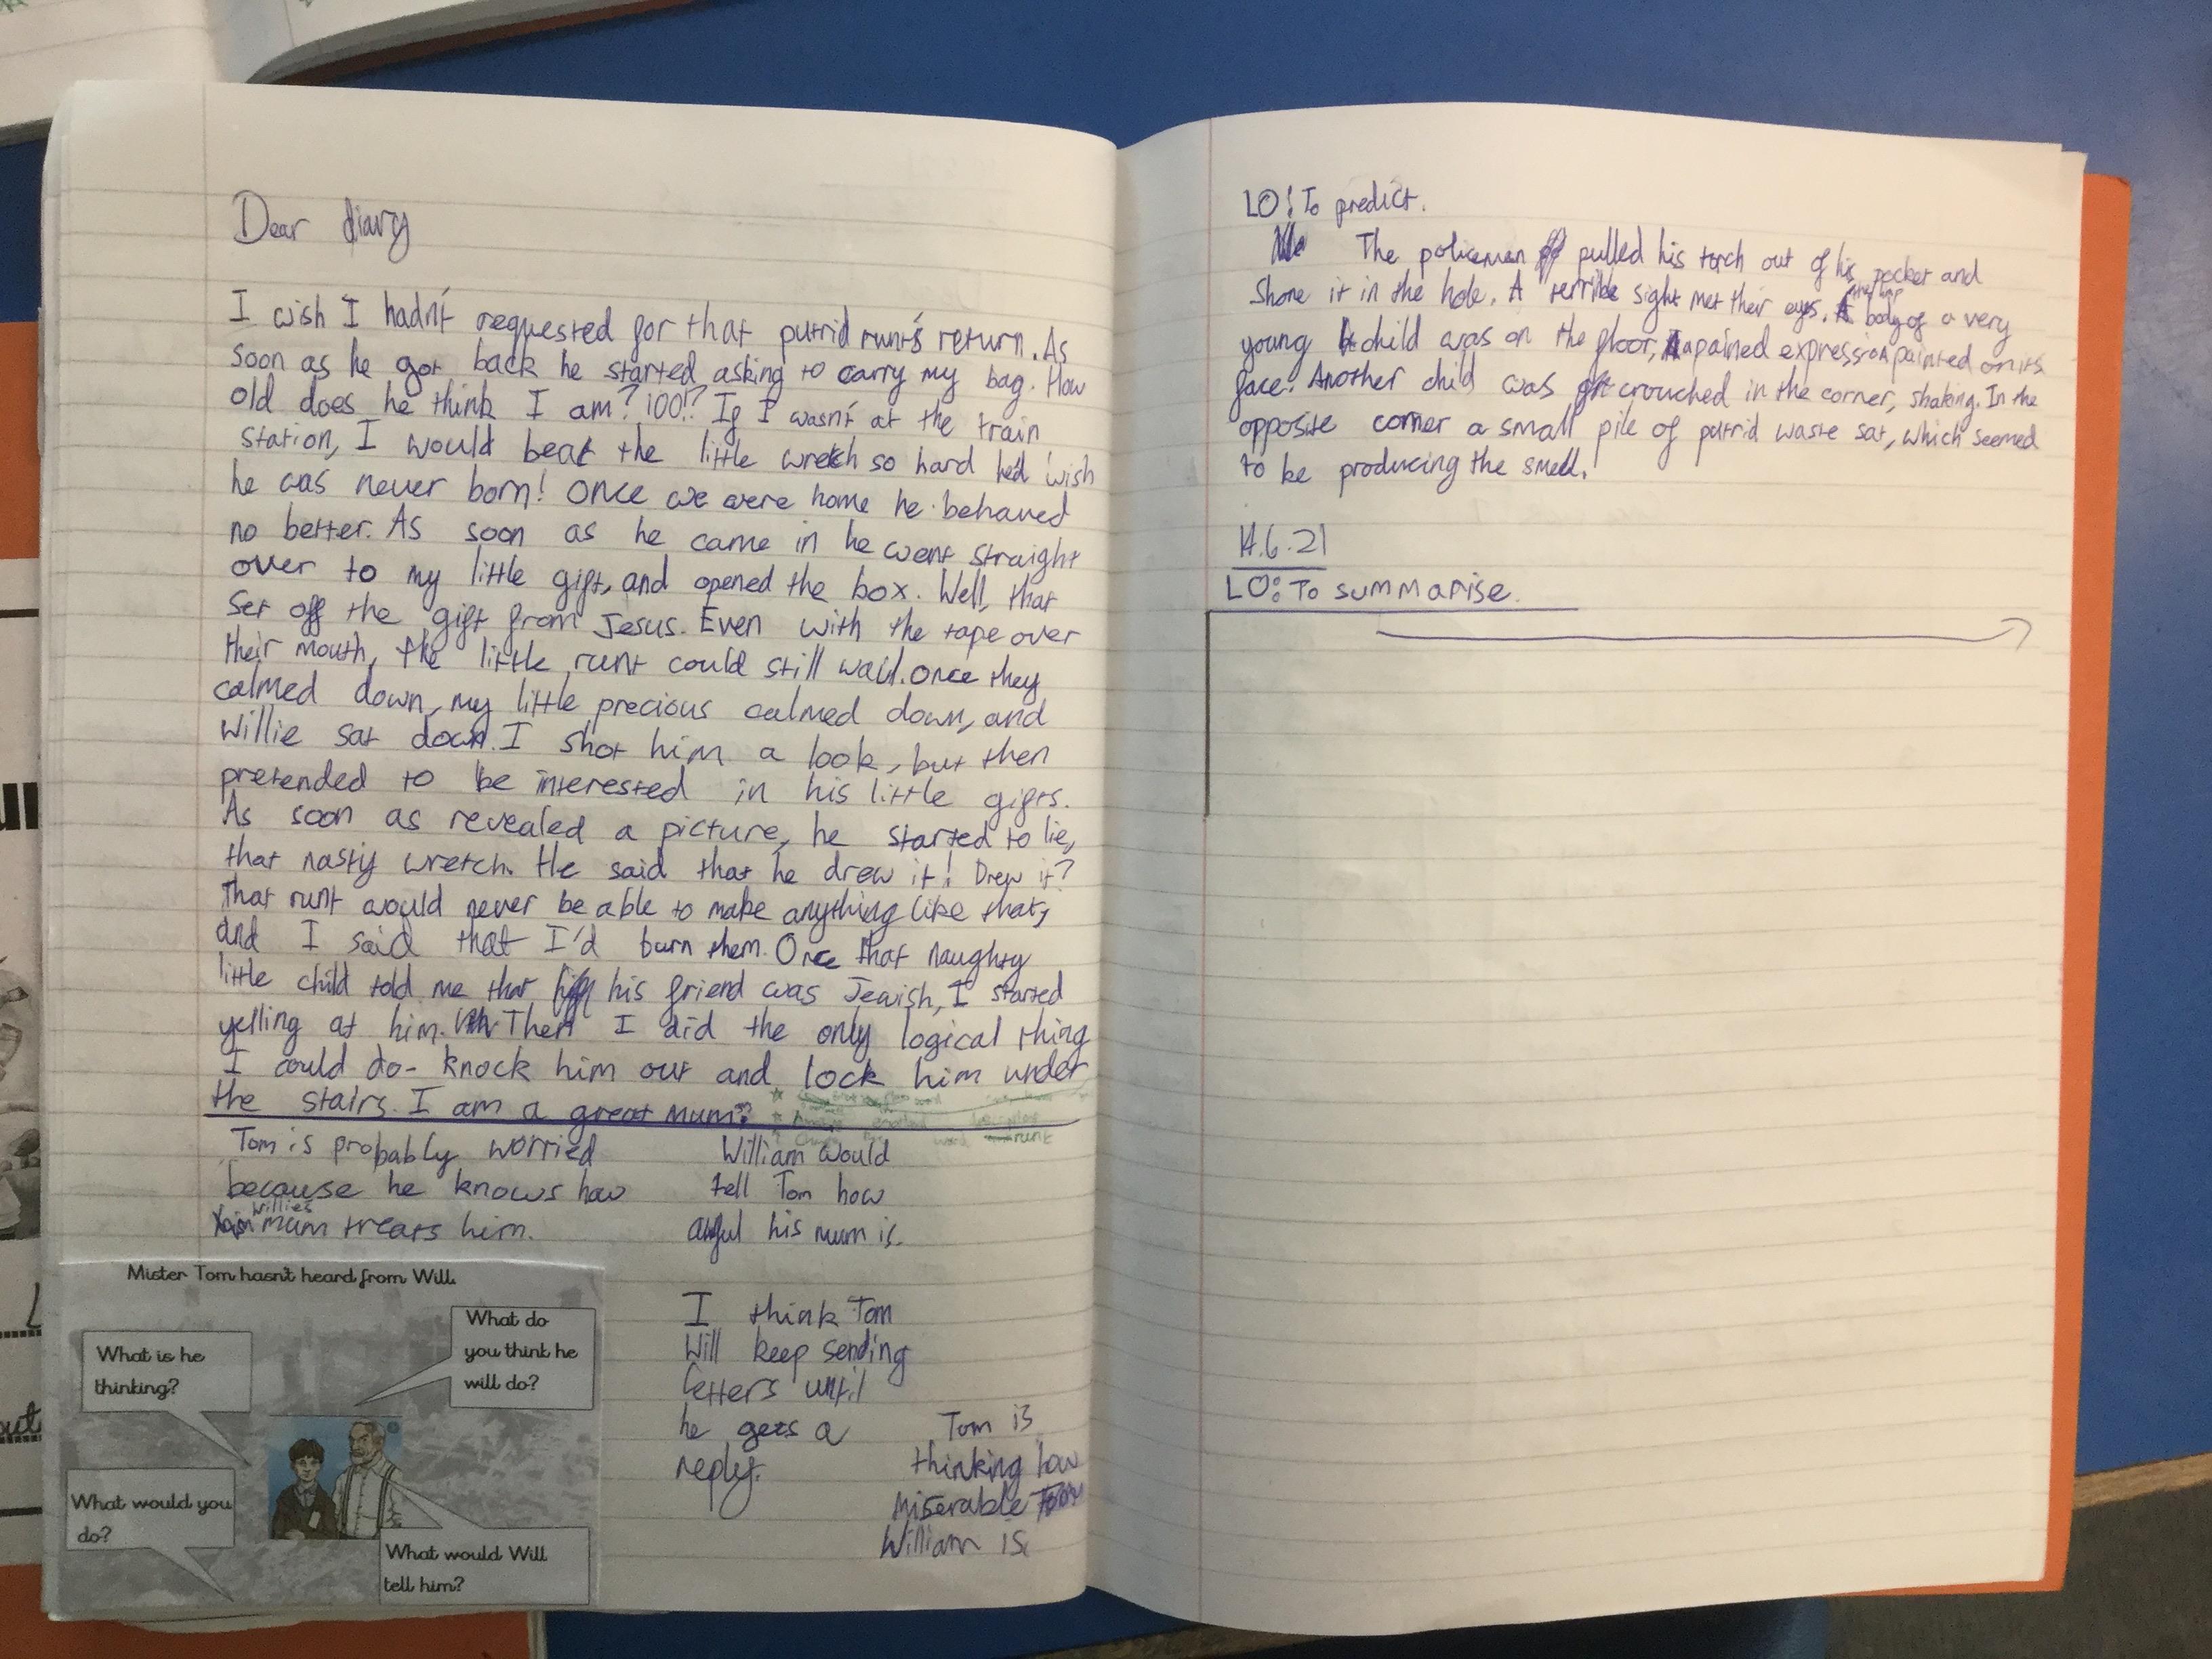 Dear diary
I wish I hadn't requested for that putrid runt's return. As
soon as he got back he started asking to carry my bag. How
old does he think I am? 100!? If I wasn't at the train
station, I would beat the little wretch so hard he'd wish
he was never born! Once we were home he behaved
no better. As soon as he came in he went straight
over to my little gift, and opened the box. Well, that
set off the gift from Jesus. Even with the tape over
their mouth, the little runt could still wail. Once they
calmed down, my little precious calmed down, and
Willie sat down. I shot him a look, but then
pretended to be interested in his little gifts.
As soon as revealed a picture, he started to lie,
that nasty wretch. He said that he drew it! Drew it?
That runt would never be able to make anything like that,
and I said that I'd burn them. Once that naughty
little child told me that his friend was Jewish, I started
yelling at him. Then I did the only logical thing
I could do- knock him out and lock him under
the stairs. I am a great mum?
word runt
Tom is probably worried
because he knows how
willies
mum treats him.
William would
tell Tom how
awful his mum is.
I think Tom
will keep sending
letters until
he gets a
reply.
Tom is
thinking how
miserable
William is.
Mister Tom hasn't heard from Will.
What is he
thinking?
What do
you think he
will do?
What would you
do?
What would Will
tell him?
LO: To predict.
The policeman pulled his torch out of his pocket and
shone it in the hole. A terrible sight met their eyes. the limp body of a very
young child was on the floor, a pained expression painted on its
face. Another child was crouched in the corner, shaking. In the
opposite corner a small pile of putrid waste sat, which seemed
to be producing the smell.
14.6.21
LO: To summarise.